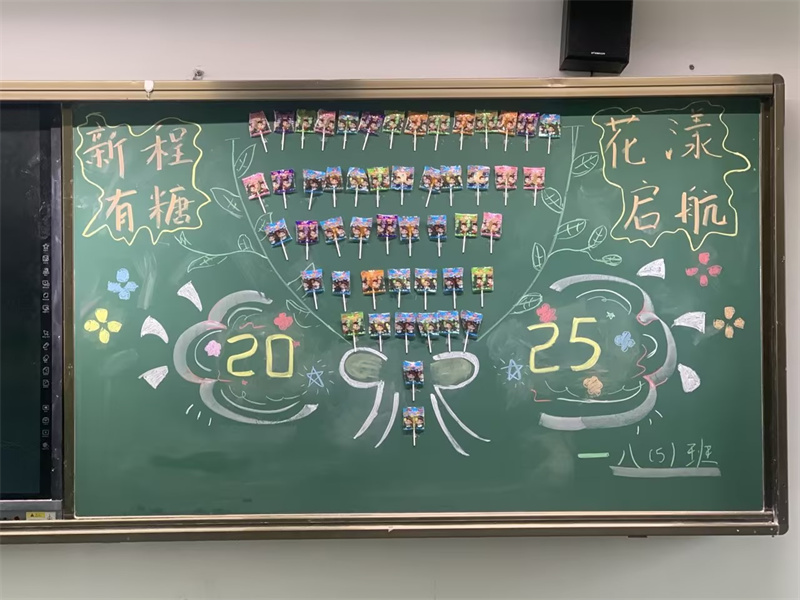 新程
有糖
花漾
启航
20 25
一八(5)班